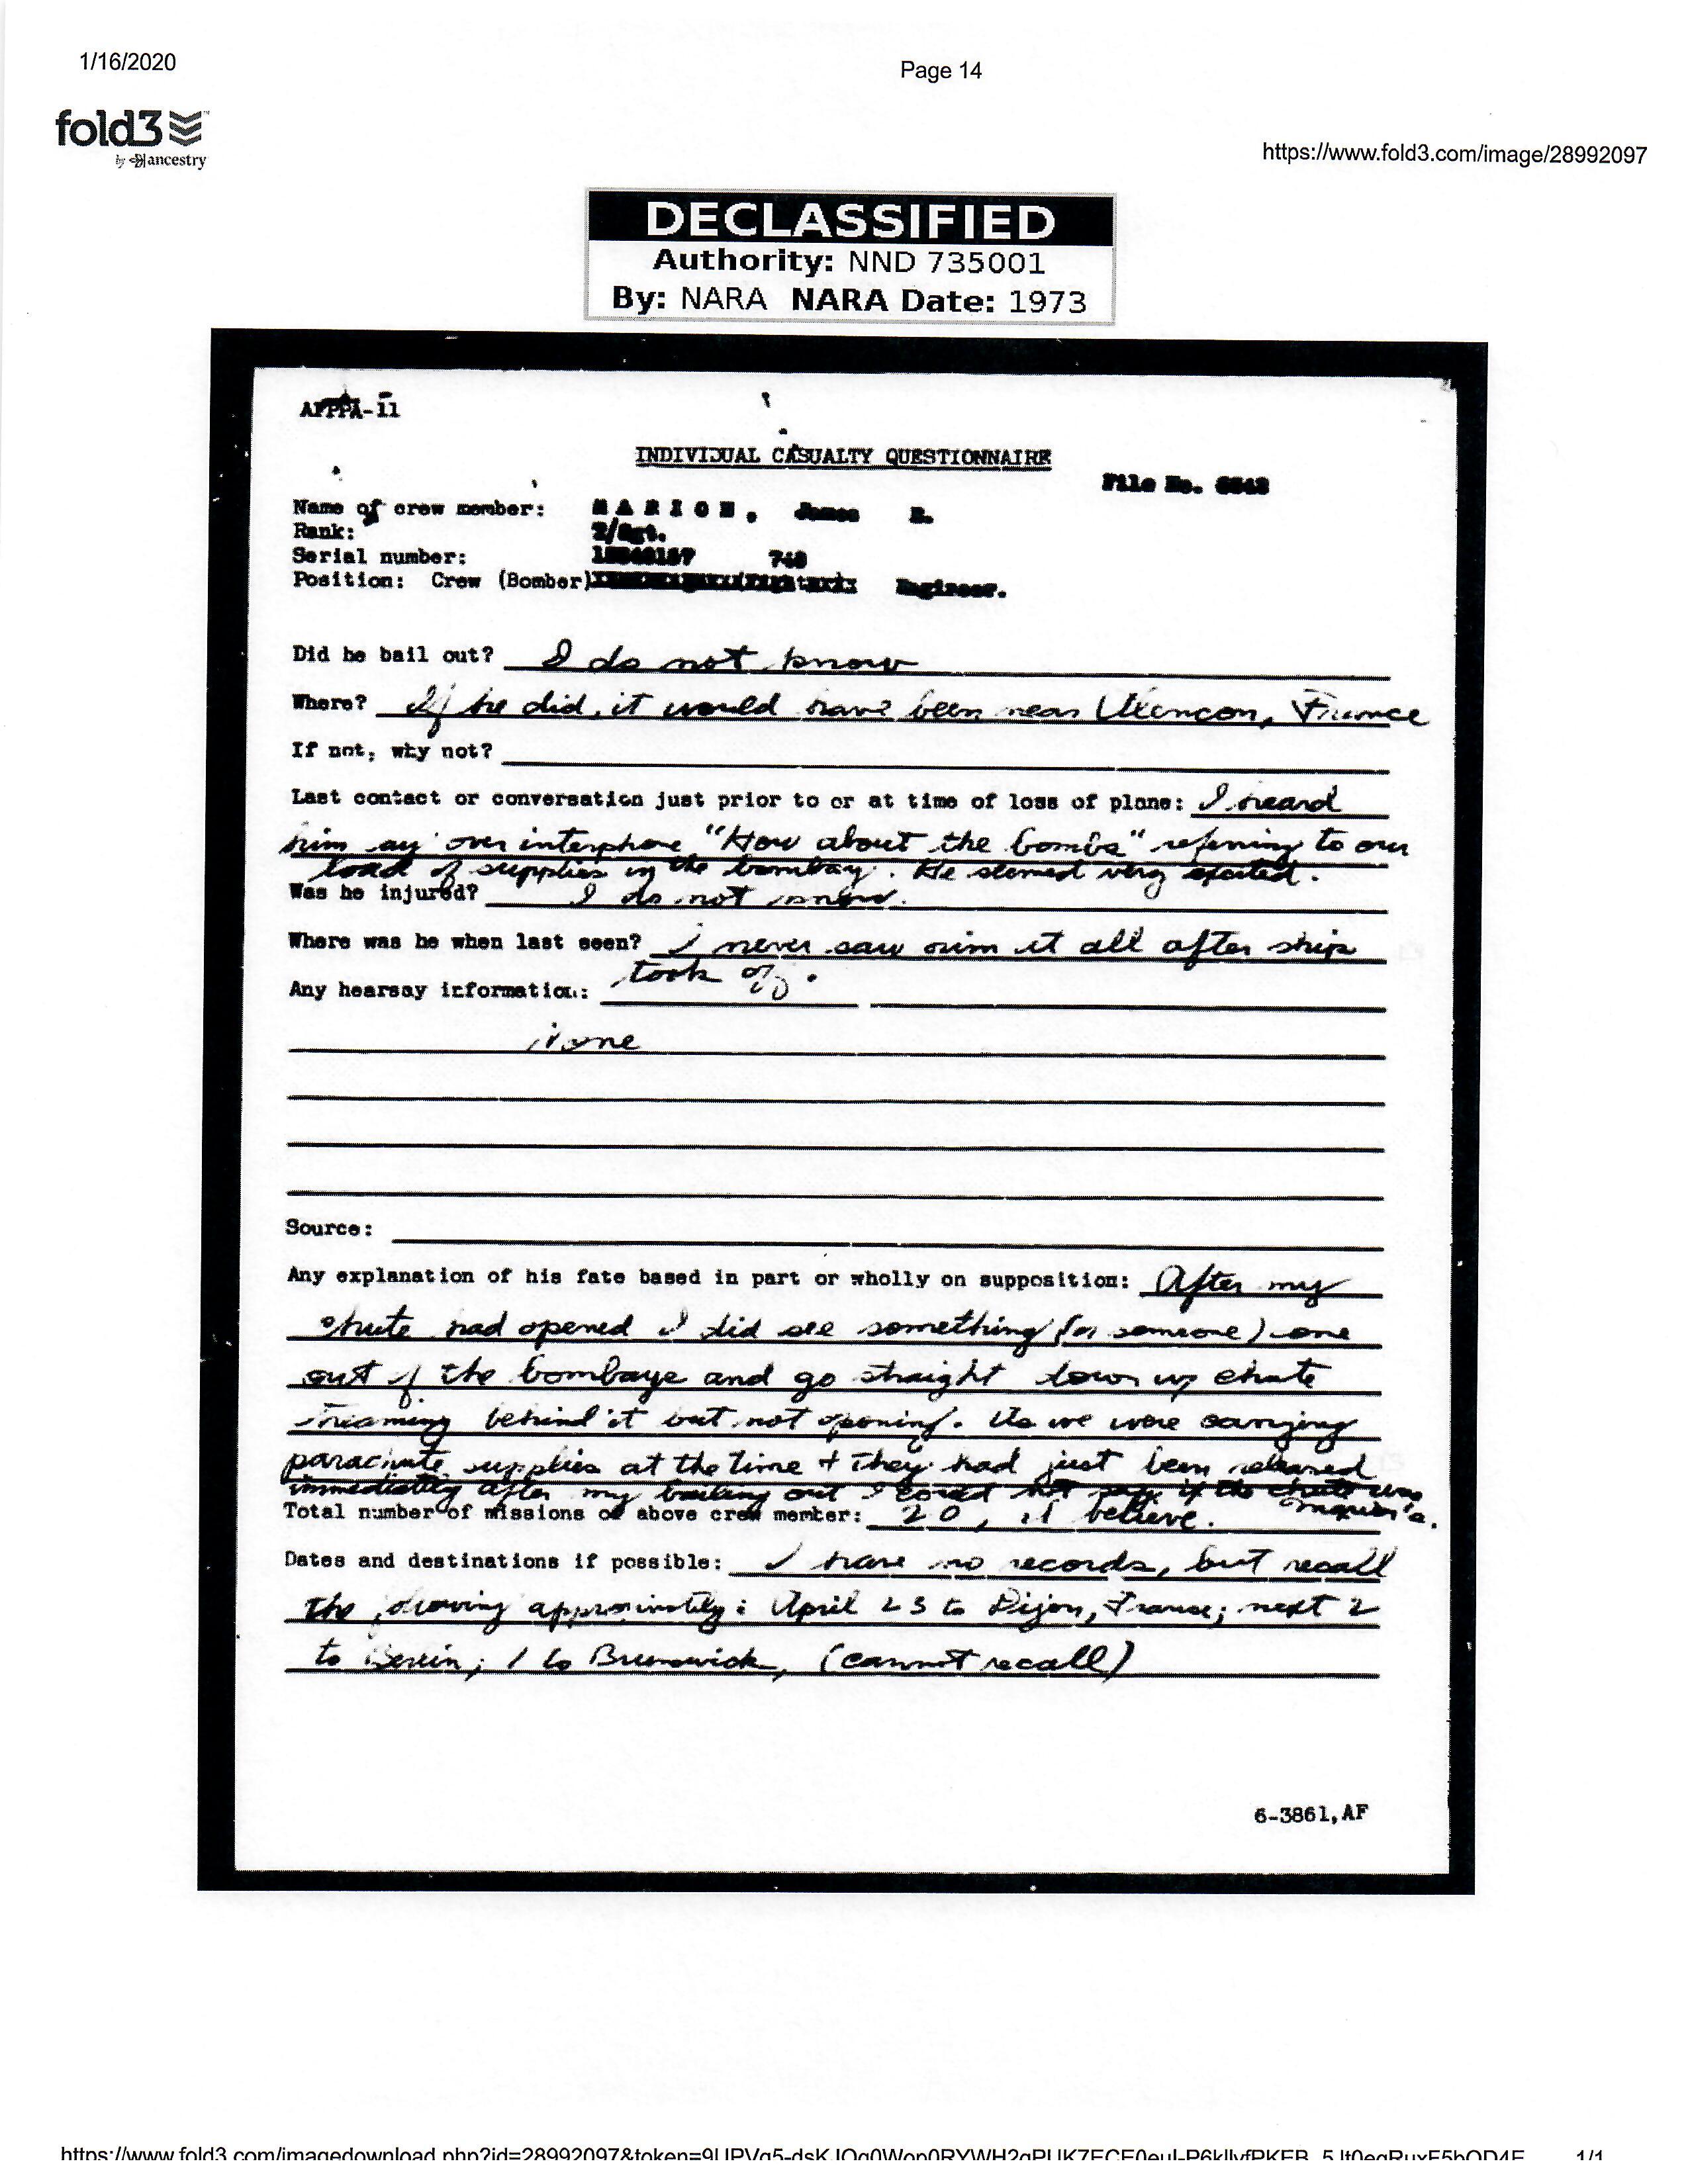 1/16/2020
Page 14
fold3
by ancestry
https://www.fold3.com/image/28992097
DECLASSIFIED
Authority: NND 735001
By: NARA NARA Date: 1973
AFPPA-11
INDIVIDUAL CASUALTY QUESTIONNAIRE
File No.
Name of crew member: MARION, James
Rank: /Sgt.
Serial number:
Position: Crew (Bomber) Engineer.
Did he bail out? I do not know
Where? If he did, it would have been near Alencon, France
If not, why not?
Last contact or conversation just prior to or at time of loss of plane: I heard
him say over interphone "How about the bombs" referring to our
load of supplies in the bombay. He seemed very excited.
Was he injured? I do not know.
Where was he when last seen? I never saw him at all after ship
took off.
Any hearsay information:
None
Source:
Any explanation of his fate based in part or wholly on supposition: After my
chute had opened I did see something (or someone) come
out of the bombaye and go straight down w/ chute
streaming behind it but not opening. As we were carrying
parachute supplies at the time + they had just been released
immediately after my bailing out I could not say if the chute was
Marion's.
Total number of missions of above crew member: 20, I believe.
Dates and destinations if possible: I have no records, but recall
the following approximately: April 23 to Dijon, France; next 2
to Berlin; 1 to Brunswick, (cannot recall)
6-3861,AF
1/1